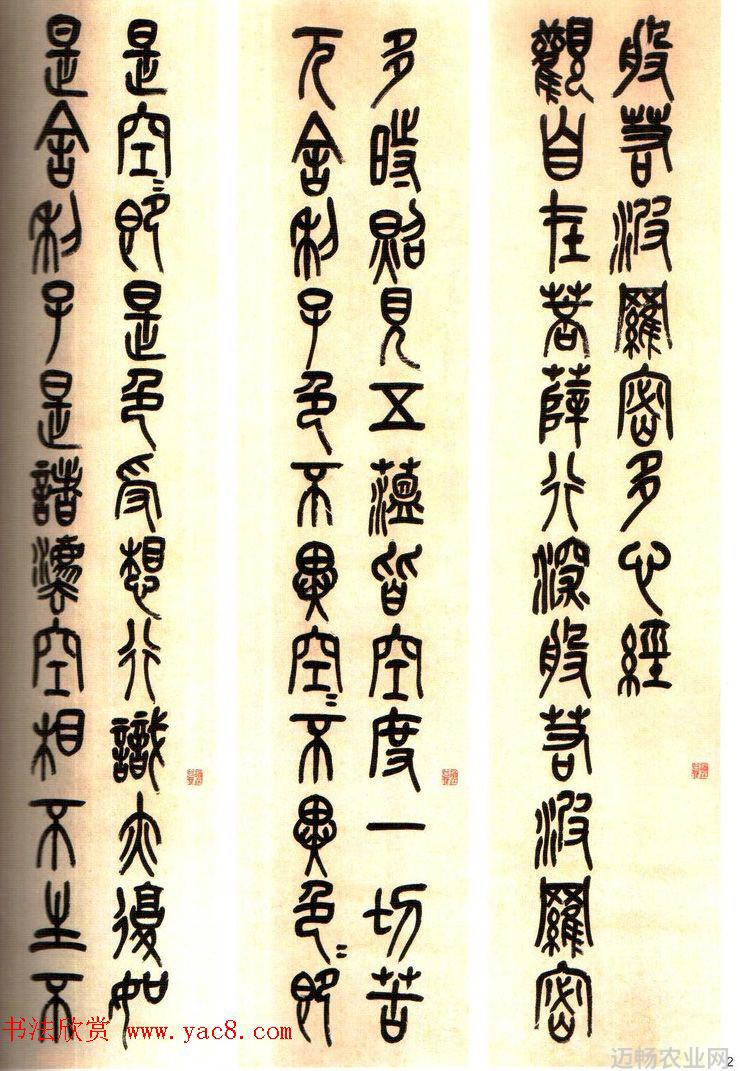 般若波羅密多心經
觀自在菩薩行深般若波羅密
多時照見五蘊皆空度一切苦
厄舍利子色不異空〻不異色〻即
是空〻即是色受想行識亦復如
是舍利子是諸灋空相不生不
书法欣赏 www.yac8.com
迈畅农业网
2